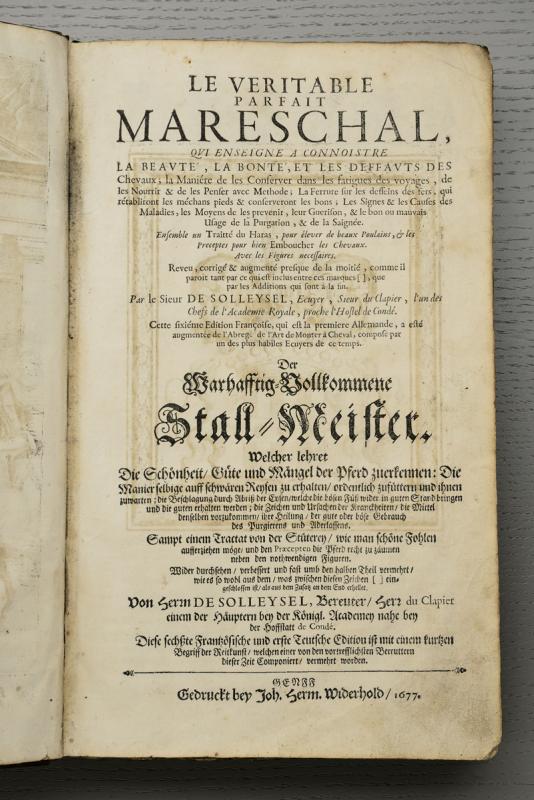 LE VERITABLE
PARFAIT
MARESCHAL,
QVI ENSEIGNE A CONNOISTRE
LA BEAVTE', LA BONTE', ET LES DEFFAUTS DES
Chevaux; la Maniére de les Conserver dans les fatigues des voyages, de
les Nourrir & de les Penser avec Methode; La Ferrure sur les desseins des fers, qui
rétabliront les méchans pieds & conserveront les bons; Les Signes & les Causes des
Maladies, les Moyens de les prevenir, leur Guerison, & le bon ou mauvais
Usage de la Purgation, & de la Saignée.
Ensemble un Traitté du Haras, pour élever de beaux Poulains, & les
Preceptes pour bien Emboucher les Chevaux.
Avec les Figures necessaires.
Reveu, corrigé & augmenté presque de la moitié, comme il
paroit tant par ce qui est inclus entre ces marques [ ], que
par les Additions qui sont à la fin.
Par le Sieur DE SOLLEYSEL, Ecuyer, Sieur du Clapier, l'un des
Chefs de l'Academie Royale, proche l'Hostel de Condé.
Cette sixiéme Edition Françoise, qui est la premiere Allemande, a esté
augmentée de l'Abregé de l'Art de Monter à Cheval, composé par
un des plus habiles Ecuyers de ce temps.
Der
Warhafftig-Vollkommene
Stall-Meister.
Welcher lehret
Die Schönheit/ Güte und Mängel der Pferd zuerkennen: Die
Manier selbige auff schwären Reysen zu erhalten/ ordentlich zufüttern und ihnen
zuwarten; die Beschlagung durch Abriß der Eysen/ welche die bösen Füß wider in guten Stand bringen
und die guten erhalten werden; die Zeichen und Ursachen der Kranckheiten/ die Mittel
denselben vorzukommen/ ihre Heilung/ der gute oder böse Gebrauch
des Purgierens und Aderlassens.
Sampt einem Tractat von der Stüterey/ wie man schöne Fohlen
aufferziehen möge/ und den Præcepten die Pferd recht zu zäumen
neben den nothwendigen Figuren.
Wider durchsehen/ verbessert und fast umb den halben Theil vermehrt/
wie es so wohl aus dem/ was zwischen diesen Zeichen [ ] ein-
geschlossen ist/ als aus dem Zusatz an dem End erhellet.
Von Herrn DE SOLLEYSEL, Bereuter/ Herr du Clapier
einem der Häuptern bey der Königl. Academey nahe bey
der Hoffstatt de Condé.
Diese sechste Frantzösische und erste Teutsche Edition ist mit einem kurtzen
Begriff der Reitkunst/ welchen einer von den vortrefflichsten Bereuttern
dieser Zeit Componiert/ vermehrt worden.
GENFF
Gedruckt bey Joh. Herm. Widerhold/ 1677.